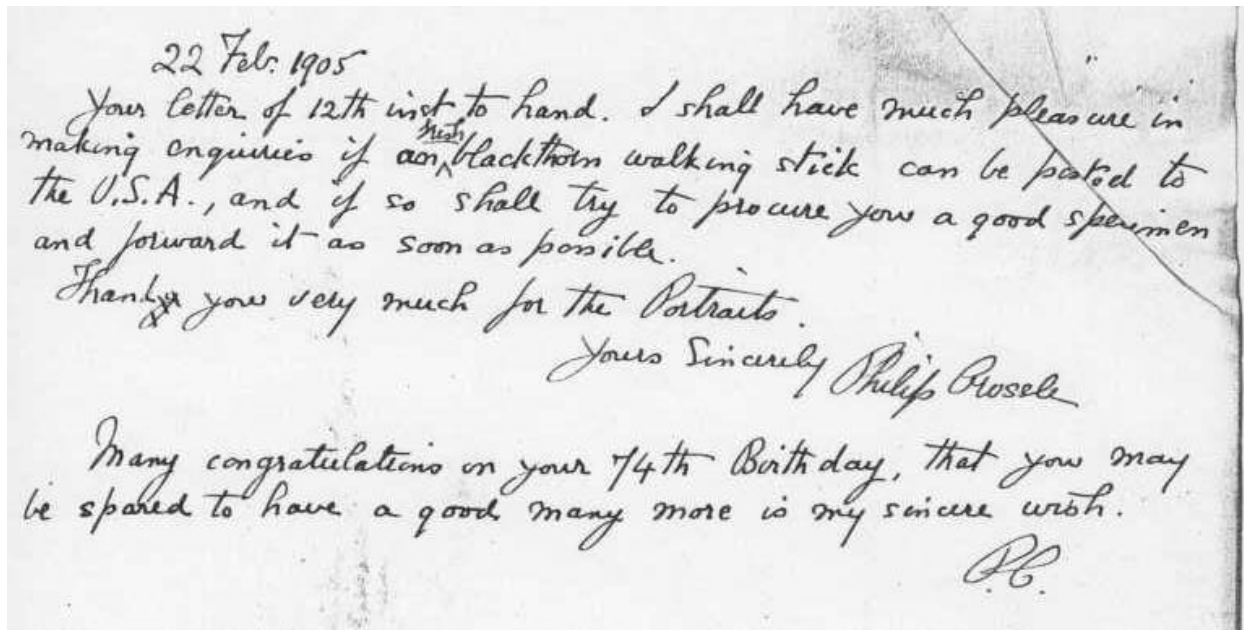 22 Feb. 1905
Your letter of 12th inst to hand. I shall have much pleasure in
making enquiries if an Irish blackthorn walking stick can be posted to
the U.S.A., and if so shall try to procure you a good specimen
and forward it as soon as possible.
Thank you very much for the Portraits.
Yours Sincerely Philip Crossle
Many congratulations on your 74th Birthday, that you may
be spared to have a good many more is my sincere wish.
P.C.